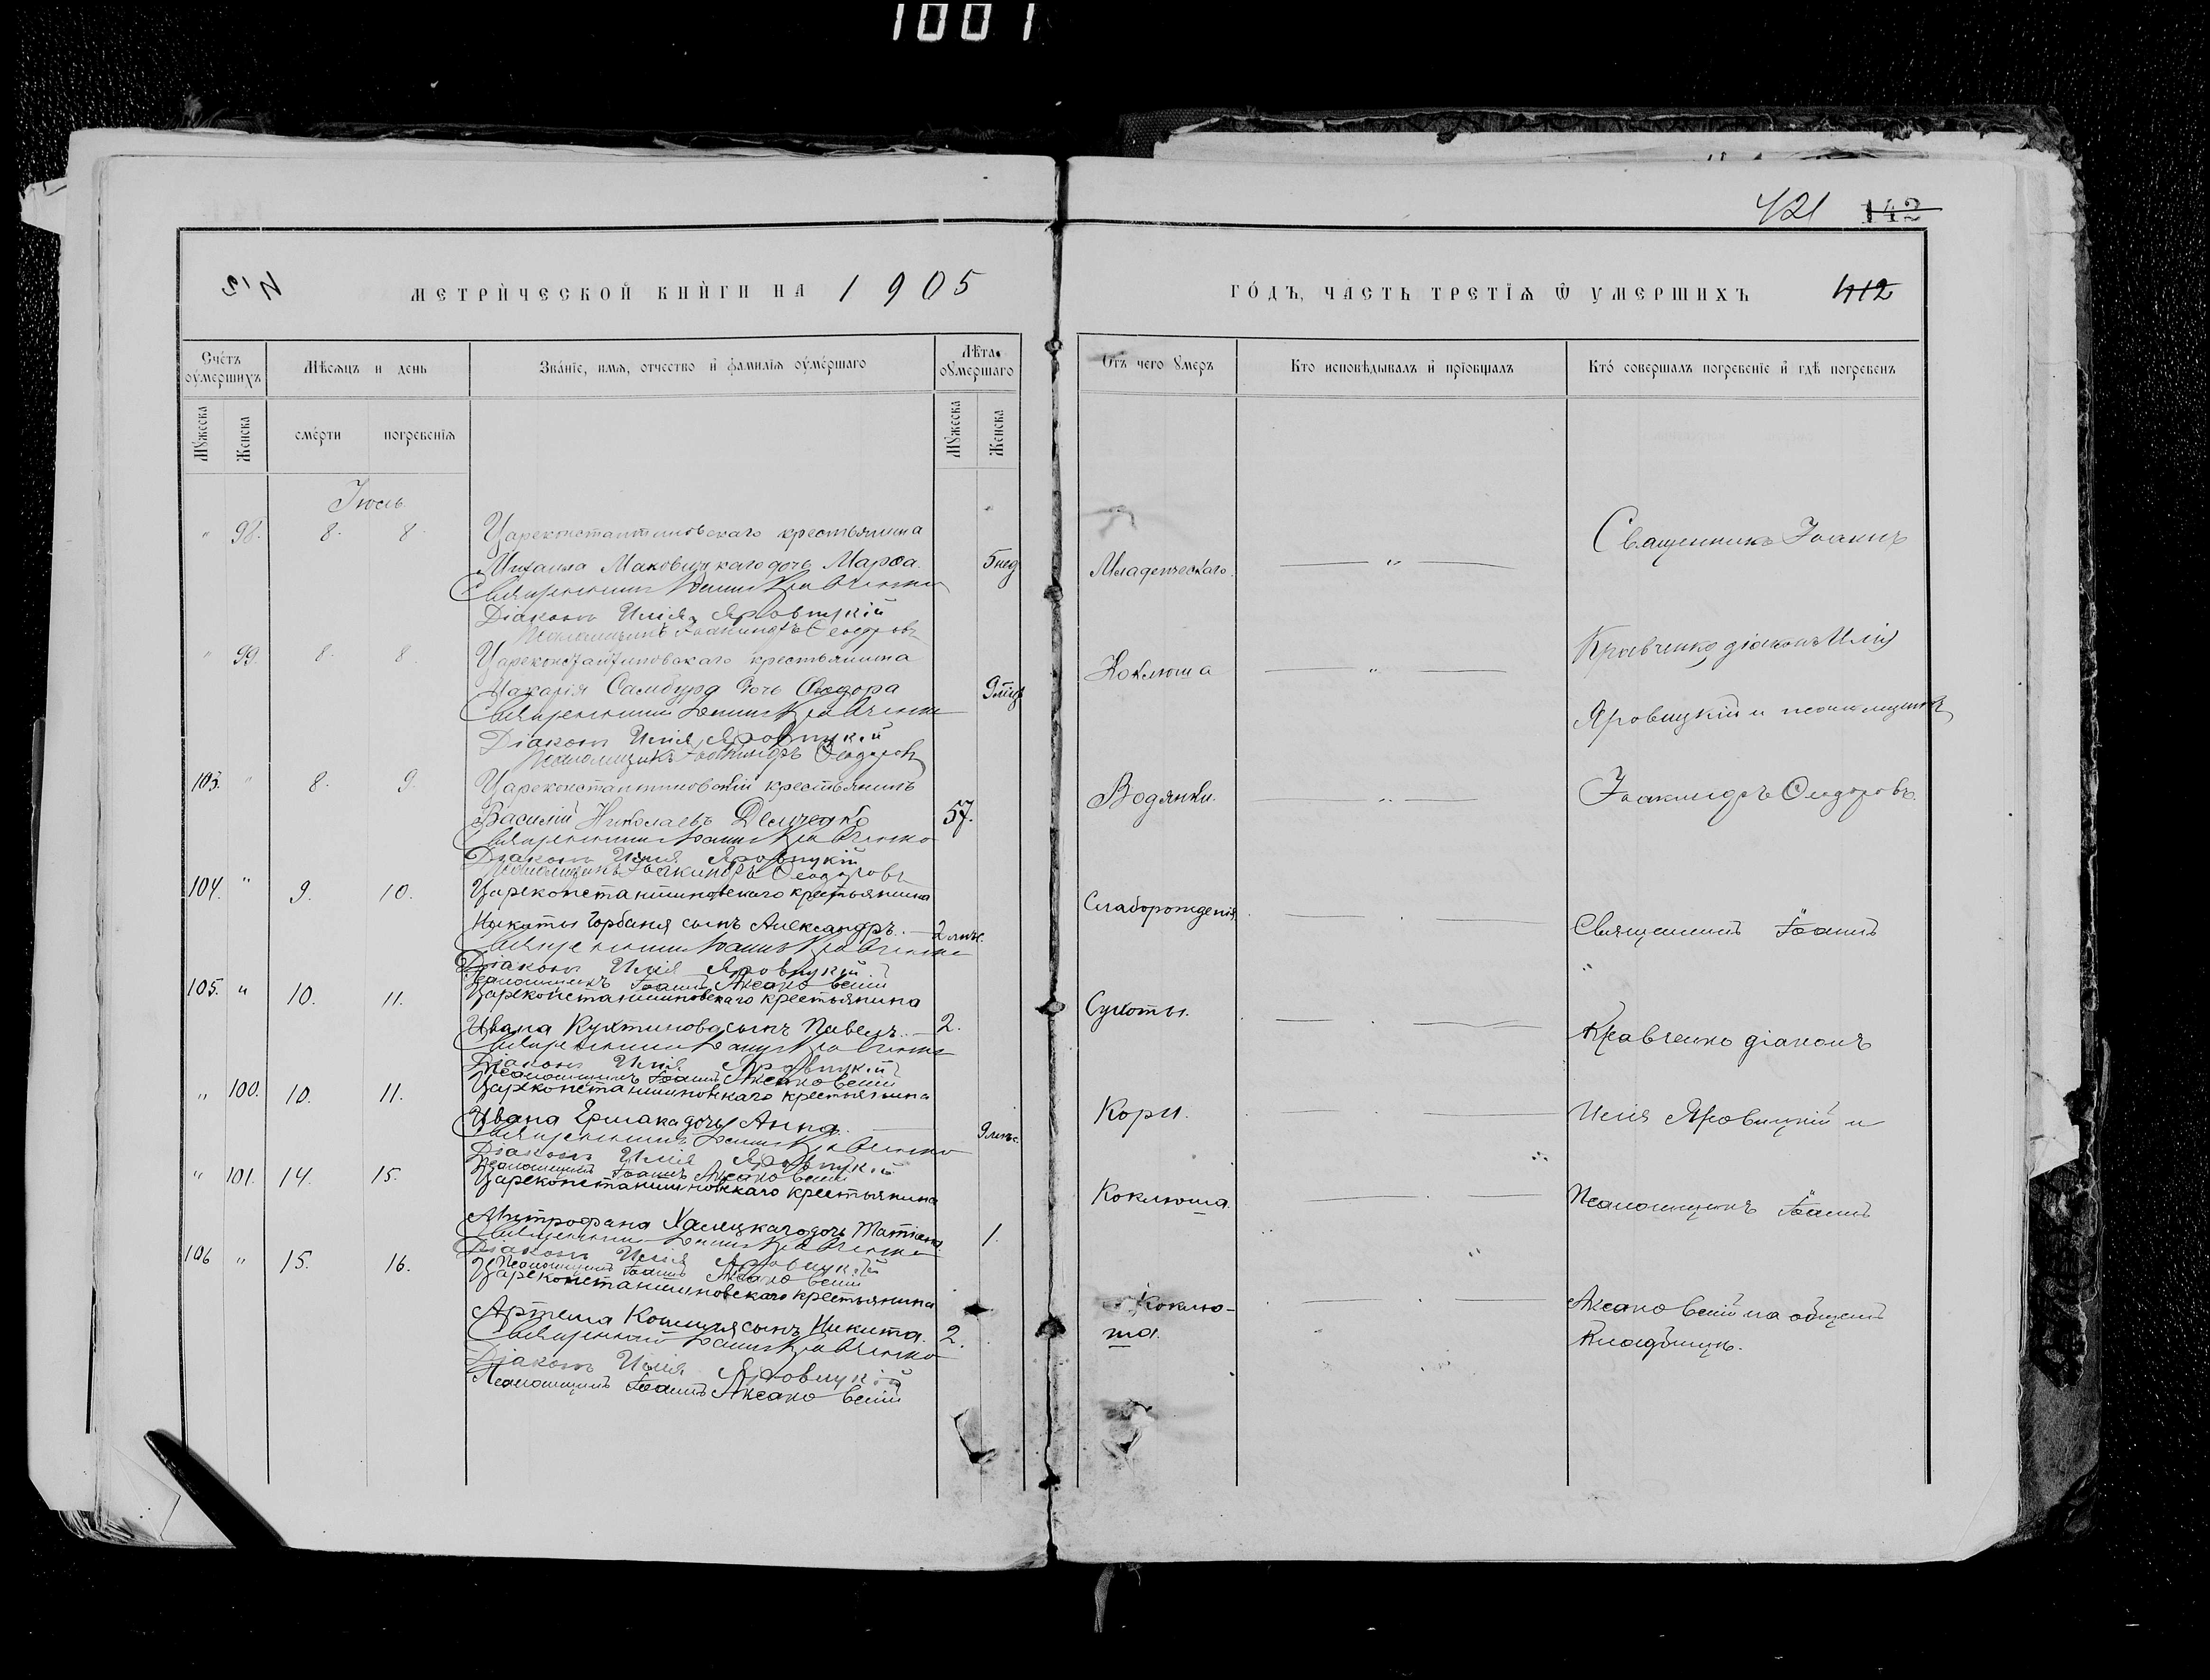 1001
421 142
412 МЕТРИЧЕСКОЙ КНИГИ НА 1905
ГОДЪ, ЧАСТЬ ТРЕТІЯ Ѿ УМЕРШИХЪ 412
Счетъ оумершихъ
Мѣсяцъ и день
Званіе, имя, отчество и фамилія оумершаго
Лѣта оумершаго
Отъ чего умеръ
Кто исповѣдывалъ и пріобщалъ
Кто совершалъ погребеніе и гдѣ погребенъ
Мужеска Женска смерти погребенія Мужеска Женска
Іюль
" 98. 8. 8. Цареконстантиновскаго крестьянина
Михаила Маковицкаго дочь Марѳа. 5 нед Младенческаго. — " —
Священникъ Іоаннъ Кравченко
Діаконъ Илія Яровицкій
Псаломщикъ Іоакимъ Ѳеодоровъ
" 99. 8. 8. Цареконстантиновскаго крестьянина
Макарія Самбурд дочь Ѳеодора 9 мѣс Коклюша — " —
Священникъ Іоаннъ Кравченко
Діаконъ Илія Яровицкій
Псаломщикъ Ѳеодоровъ
103. " 8. 9. Цареконстантиновскій крестьянинъ
Василій Николаевъ Демченко 57. Водянки. — " —
Священникъ Іоаннъ Кравченко
Діаконъ Илія Яровицкій
Псаломщикъ Ѳеодоровъ
Священникъ Іоаннъ
Кравченко, діаконъ Илія
Яровицкій и псаломщикъ
Ѳеодоровъ.
104. " 9. 10. Цареконстантиновскаго крестьянина
Никиты Горбаня сынъ Александръ. — 2 мѣс. Слаборожденія.
Священникъ Іоаннъ Кравченко
Діаконъ Илія Яровицкій
Псаломщикъ Іоаннъ Аксаковскій
105. " 10. 11. Цареконстантиновскаго крестьянина
Ивана Кухтинова сынъ Павелъ. — 2. Сухоты.
Священникъ Іоаннъ Кравченко
Діаконъ Илія Яровицкій
Псаломщикъ Іоаннъ Аксаковскій
" 100. 10. 11. Цареконстантиновскаго крестьянина
Ивана Ермака дочь Анна. — 9 мѣс. Кори.
Священникъ Іоаннъ Кравченко
Діаконъ Илія Яровицкій
Псаломщикъ Іоаннъ Аксаковскій
" 101. 14. 15. Цареконстантиновскаго крестьянина
Митрофана Халецкаго дочь Татіана. 1. Коклюша.
Священникъ Іоаннъ Кравченко
Діаконъ Илія Яровицкій
Псаломщикъ Іоаннъ Аксаковскій
106 " 15. 16. Цареконстантиновскаго крестьянина
Артема сынъ Никита. 2. Коклю-
ша.
Священникъ Іоаннъ Кравченко
Діаконъ Илія Яровицкій
Псаломщикъ Іоаннъ Аксаковскій
Священникъ Іоаннъ
Кравченко діаконъ
Илія Яровицкій и
Псаломщикъ Іоаннъ
Аксаковскій на общемъ
кладбищѣ.